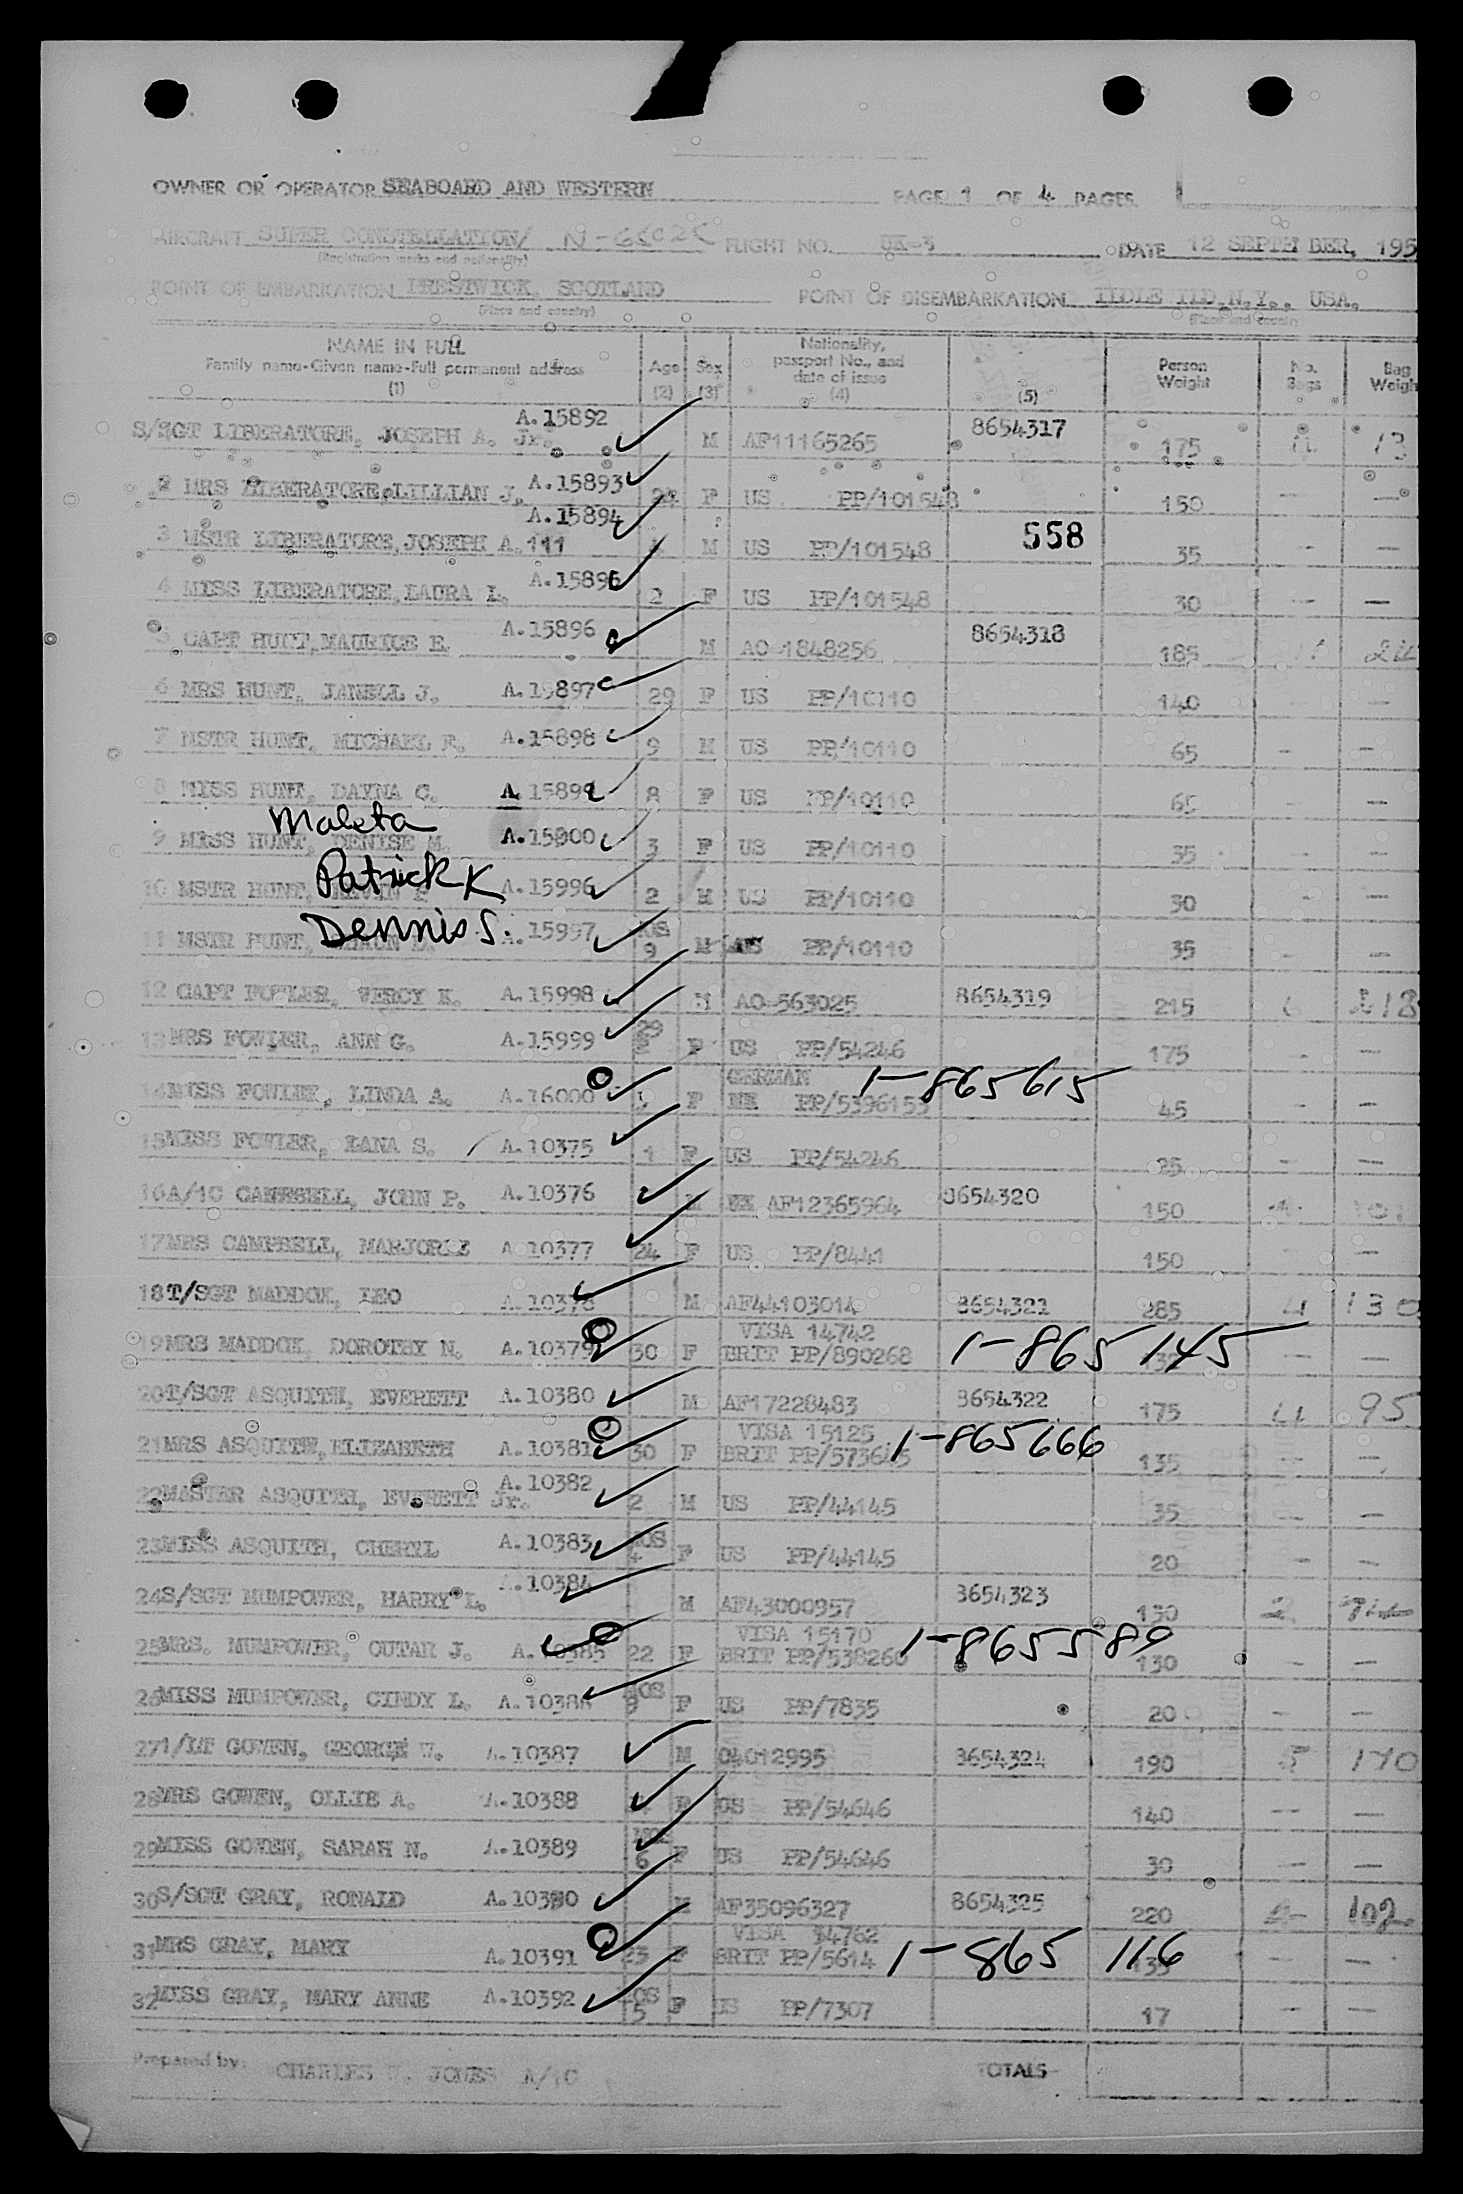 OWNER OR OPERATOR SEABOARD AND WESTERN PAGE 1 OF 4 PAGES
AIRCRAFT SUPER CONSTELLATION/ FLIGHT NO. UK-3 DATE 12 SEPTEMBER, 195
(Registration marks and nationality)
POINT OF EMBARKATION PRESTWICK, SCOTLAND POINT OF DISEMBARKATION IDLE ILD, N.Y., USA.
(Place and country) (Place and country)
NAME IN FULL
Family name-Given name-Full permanent address
(1) Age (2) Sex (3) Nationality, passport No., and date of issue (4) (5) Person Weight No. Bags Bag Weigh
S/SGT LIBERATORE, JOSEPH A. Jr. A.15892 M AF11165265 8654317 175 13
2 MRS LIBERATORE, LILLIAN J. A.15893 F US PP/101548 150 — —
3 MSTR LIBERATORE, JOSEPH A. 111 A.15894 M US PP/101548 558 35 — —
4 MISS LIBERATORE, LAURA L. A.15895 2 F US PP/101548 30 — —
5 CAPT HUNT, MAURICE E. A.15896 M AO 1848256 8654318 185
6 MRS HUNT, JANELL J. A.15897 29 F US PP/10110 140 — —
7 MSTR HUNT, MICHAEL F. A.15898 9 M US PP/10110 65 — —
8 MISS HUNT, DAYNA C. A.15899 8 F US PP/10110 65 — —
Maleta
9 MISS HUNT, DENISE M. A.15900 3 F US PP/10110 35 — —
Patrick K
10 MSTR HUNT, KEVIN P A.15996 2 M US PP/10110 30 — —
Dennis S.
11 MSTR HUNT, A.15997 MOS 9 M US PP/10110 35 — —
12 CAPT FOWLER, VERCY K. A.15998 M AO-563025 8654319 215 218
13 MRS FOWLER, ANN G. A.15999 29 F US PP/54246 175 — —
14 MISS FOWLER, LINDA A. A.16000 F GERMAN PP/5396153 1-865615 45 — —
15 MISS FOWLER, DANA S. A.10375 1 F US PP/54246 25 — —
16 A/1C CAMPBELL, JOHN P. A.10376 M AF12365964 8654320 150
17 MRS CAMPBELL, MARJORIE A.10377 24 F US PP/8441 150 — —
18 T/SGT MADDOX, LEO A.10378 M AF44103014 8654321 285 4 130
19 MRS MADDOX, DOROTHY N. A.10379 30 F VISA 14742 BRIT PP/890268 1-865145 — —
20 T/SGT ASQUITH, EVERETT A.10380 M AF17228483 8654322 175 4 95
21 MRS ASQUITH, ELIZABETH A.10381 30 F VISA 15125 BRIT 1-865666 135 — —
22 MASTER ASQUITH, EVERETT Jr. A.10382 2 M US PP/44145 35 — —
23 MISS ASQUITH, CHERYL A.10383 MOS 4 F US PP/44145 20 — —
24 S/SGT MUMPOWER, HARRY L. A.10384 M AF43000957 8654323 150 2
25 MRS. MUMPOWER, OUTAR J. A.10385 22 F VISA 15170 BRIT PP/538260 1-865589 130 — —
26 MISS MUMPOWER, CINDY L. A.10386 MOS 9 F US PP/7835 20 — —
27 1/LT GOWEN, GEORGE W. A.10387 M 04012995 8654324 190 5 170
28 MRS GOWEN, OLLIE A. A.10388 F US PP/54646 140 — —
29 MISS GOWEN, SARAH N. A.10389 MOS 6 F US PP/54646 30 — —
30 S/SGT GRAY, RONALD A.10390 M AF35096327 8654325 220 2 102
31 MRS GRAY, MARY A.10391 23 F VISA 14762 BRIT PP/5614 1-865116 135 — —
32 MISS GRAY, MARY ANNE A.10392 MOS 5 F US PP/7307 17 — —
Prepared by: CHARLES W. JONES A/1C TOTALS